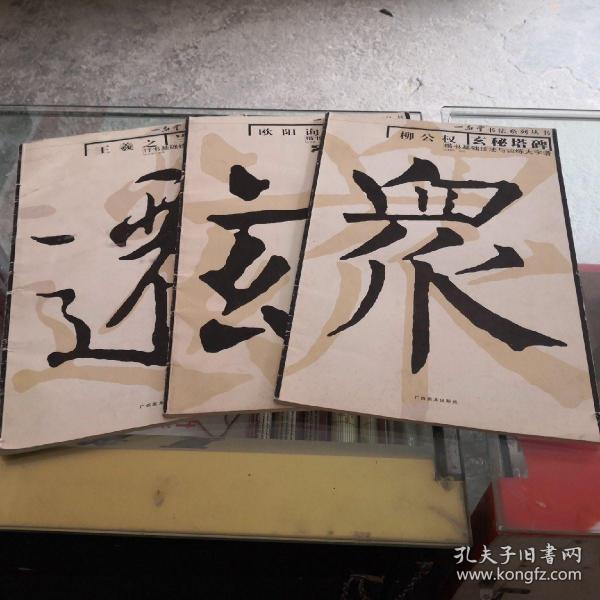 王羲之
行书基础技
广西美术
欧阳询
楷书
玄
一品堂书法系列丛书
柳公权 玄秘塔碑
楷书基础技法与训练大字谱
眾
广西美术出版社
孔夫子旧书网
www.kongfz.com